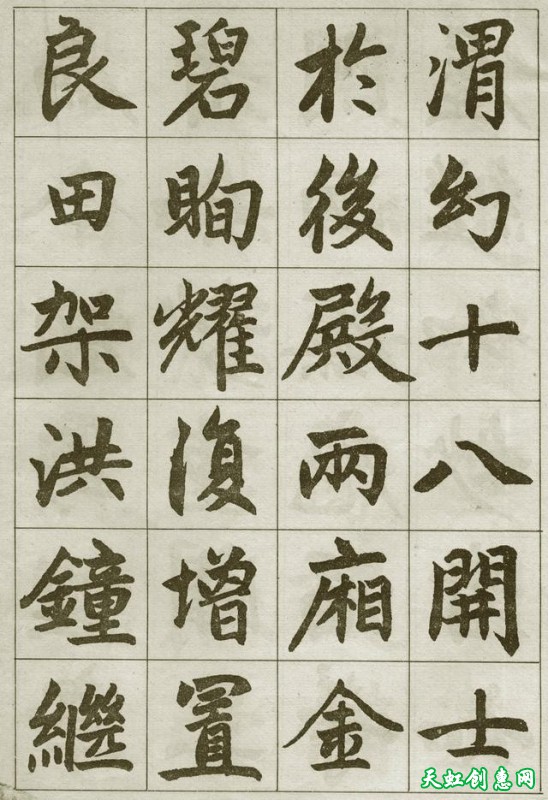 渭幻十八開士
於後殿兩廂金
碧眴耀復增置
良田架洪鐘繼
天虹创惠网